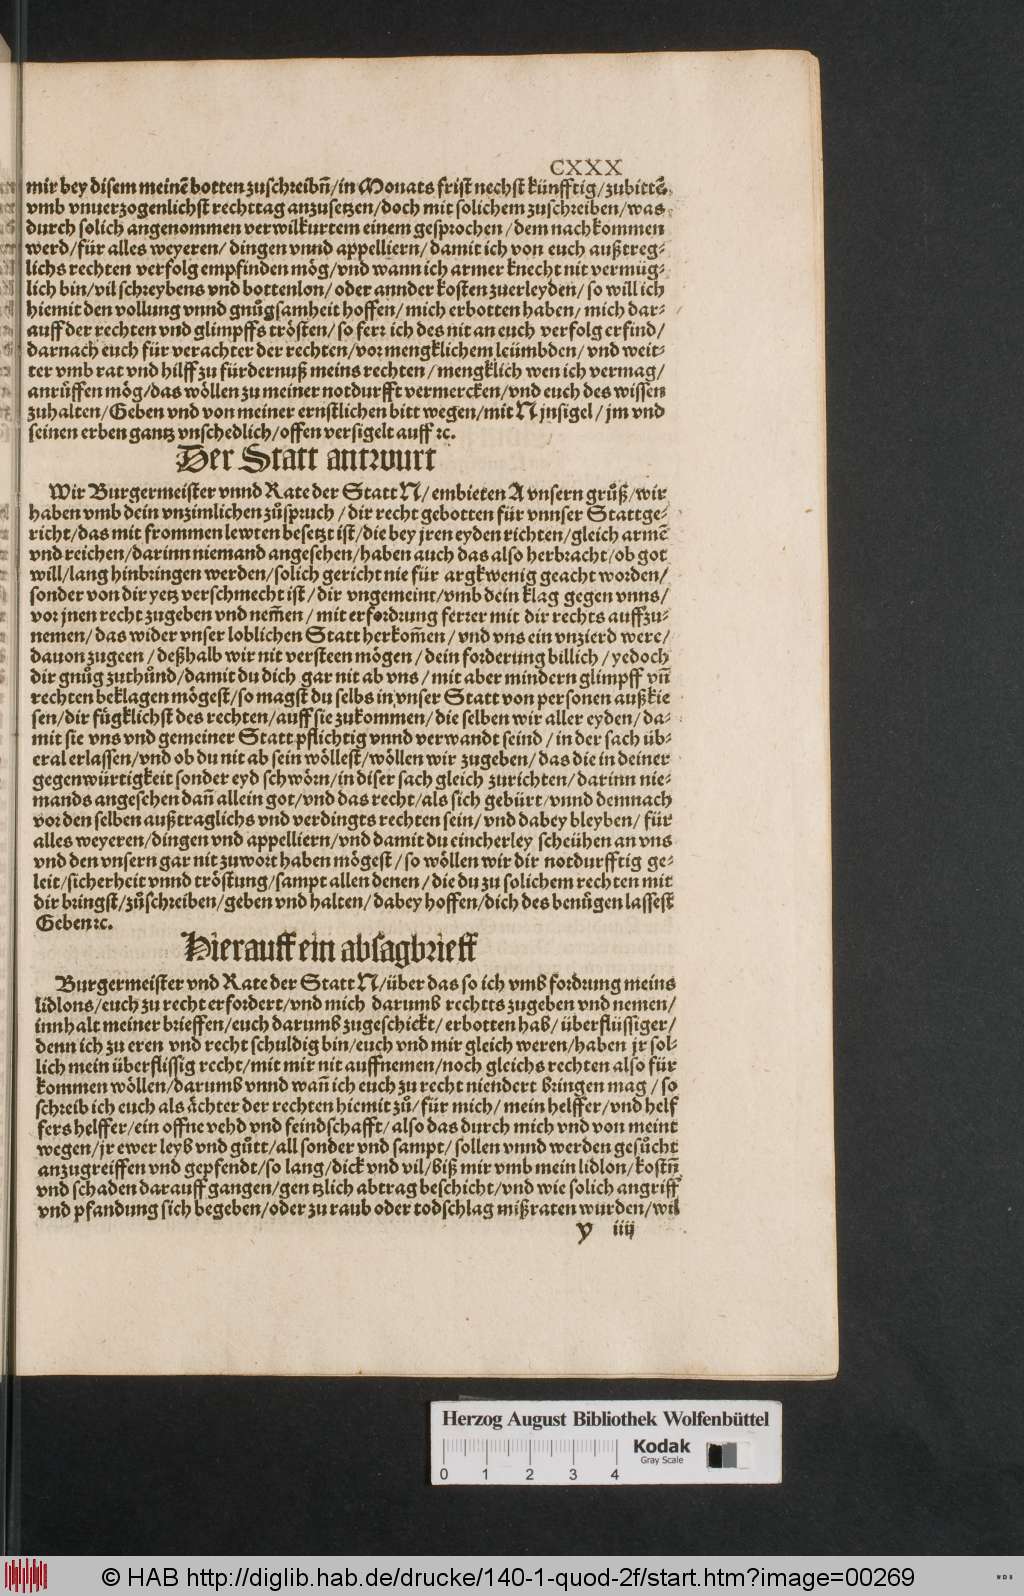 CXXX
mir bey disem meinē botten zuschreibn̄/in Monats frist nechst künfftig/zubittē
vmb vnuerzogenlichst rechttag anzusetzen/doch mit solichem zuschreiben/was
durch solich angenommen verwilkurtem einem gesprochen/dem nachkommen
werd/für alles weyeren/dingen vnnd appelliern/damit ich von euch außtreg-
lichs rechten verfolg empfinden mög/vnd wann ich armer knecht nit vermüg-
lich bin/vil schreybens vnd bottenlon/oder annder kosten zuerleyden/so will ich
hiemit den vollung vnnd gnůgsamheit hoffen/mich erbotten haben/mich dar-
auff der rechten vnd glimpffs trösten/so ferr ich des nit an euch verfolg erfind/
darnach euch für verachter der rechten/vor mengklichem leümbden/vnd weit-
ter vmb rat vnd hilff zu fürdernuß meins rechten/mengklich wen ich vermag/
anrůffen mög/das wöllen zu meiner notdurfft vermercken/vnd euch des wissen
zuhalten/Geben vnd von meiner ernstlichen bitt wegen/mit N jnsigel/jm vnd
seinen erben gantz vnschedlich/offen versigelt auff ⁊c.
Der Statt antwurt
Wir Burgermeister vnnd Rate der Statt N/embieten A vnsern grůß/wir
haben vmb dein vnzimlichen zůspruch/dir recht gebotten für vnnser Stattge-
richt/das mit frommen lewten besetzt ist/die bey jren eyden richten/gleich armē
vnd reichen/darinn niemand angesehen/haben auch das also herbracht/ob got
will/lang hinbringen werden/solich gericht nie für argkwenig geacht worden/
sonder von dir yetz verschmecht ist/dir vngemeint/vmb dein klag gegen vnns/
vor jnen recht zugeben vnd nem̄en/mit erfordrung ferrer mit dir rechts auffzu-
nemen/das wider vnser loblichen Statt herkom̄en/vnd vns ein vnzierd were/
dauon zugeen/deßhalb wir nit versteen mögen/dein forderung billich/yedoch
dir gnůg zuthůnd/damit du dich gar nit ab vns/mit aber mindern glimpff vn̄
rechten beklagen mögest/so magst du selbs in vnser Statt von personen außkie
sen/dir fůgklichst des rechten/auff sie zukommen/die selben wir aller eyden/da-
mit sie vns vnd gemeiner Statt pflichtig vnnd verwandt seind/in der sach üb-
eral erlassen/vnd ob du nit ab sein wöllest/wöllen wir zugeben/das die in deiner
gegenwürtigkeit sonder eyd schwörn/in diser sach gleich zurichten/darinn nie-
mands angesehen dan̄ allein got/vnd das recht/als sich gebürt/vnnd demnach
vor den selben außtraglichs vnd verdingts rechten sein/vnd dabey bleyben/für
alles weyeren/dingen vnd appelliern/vnd damit du eincherley scheühen an vns
vnd den vnsern gar nit zuwort haben mögest/so wöllen wir dir notdurfftig ge-
leit/sicherheit vnnd tröstung/sampt allen denen/die du zu solichem rechten mit
dir bringst/zůschreiben/geben vnd halten/dabey hoffen/dich des benůgen lassest
Geben ⁊c.
Hierauff ein absagbrieff
Burgermeister vnd Rate der Statt N/über das so ich vmb fordrung meins
lidlons/euch zu recht erfordert/vnd mich darumb rechtts zugeben vnd nemen/
innhalt meiner brieffen/euch darumb zugeschickt/erbotten hab/überflüssiger/
denn ich zu eren vnd recht schuldig bin/euch vnd mir gleich weren/haben jr sol-
lich mein überflissig recht/mit mir nit auffnemen/noch gleichs rechten also für
kommen wöllen/darumb vnnd wan̄ ich euch zu recht niendert bringen mag/so
schreib ich euch als ächter der rechten hiemit zů/für mich/mein helffer/vnd helf
fers helffer/ein offne vehd vnd feindschafft/also das durch mich vnd von meint
wegen/jr ewer leyb vnd gůtt/all sonder vnd sampt/sollen vnnd werden gesůcht
anzugreiffen vnd gepfendt/so lang/dick vnd vil/biß mir vmb mein lidlon/kostn̄
vnd schaden darauff gangen/gentzlich abtrag beschicht/vnd wie solich angriff
vnd pfandung sich begeben/oder zu raub oder todschlag mißraten wurden/wil
y iiij
Herzog August Bibliothek Wolfenbüttel
0 1 2 3 4
Kodak
Gray Scale
© HAB http://diglib.hab.de/drucke/140-1-quod-2f/start.htm?image=00269